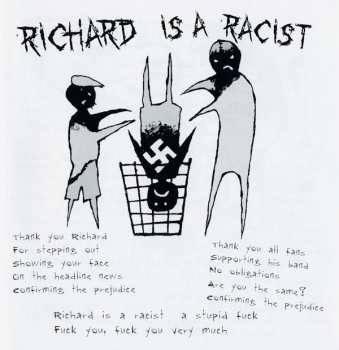 RICHARD IS A RACIST
Thank you Richard
For stepping out
Showing your face
On the headline news
Confirming the prejudice
Thank you all fans
Supporting his band
No obligations
Are you the same?
Confirming the prejudice
Richard is a racist a stupid fuck
Fuck you, fuck you very much